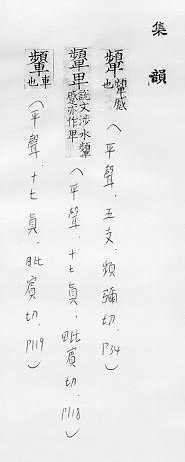 集韻
顰 顰慼也（平聲．五支．頻彌切．P34）
顰卑 說文涉水顰慼亦作卑（平聲．十七真．毗賓切．P118）
䡟 車也（平聲．十七真．毗賓切．P119）